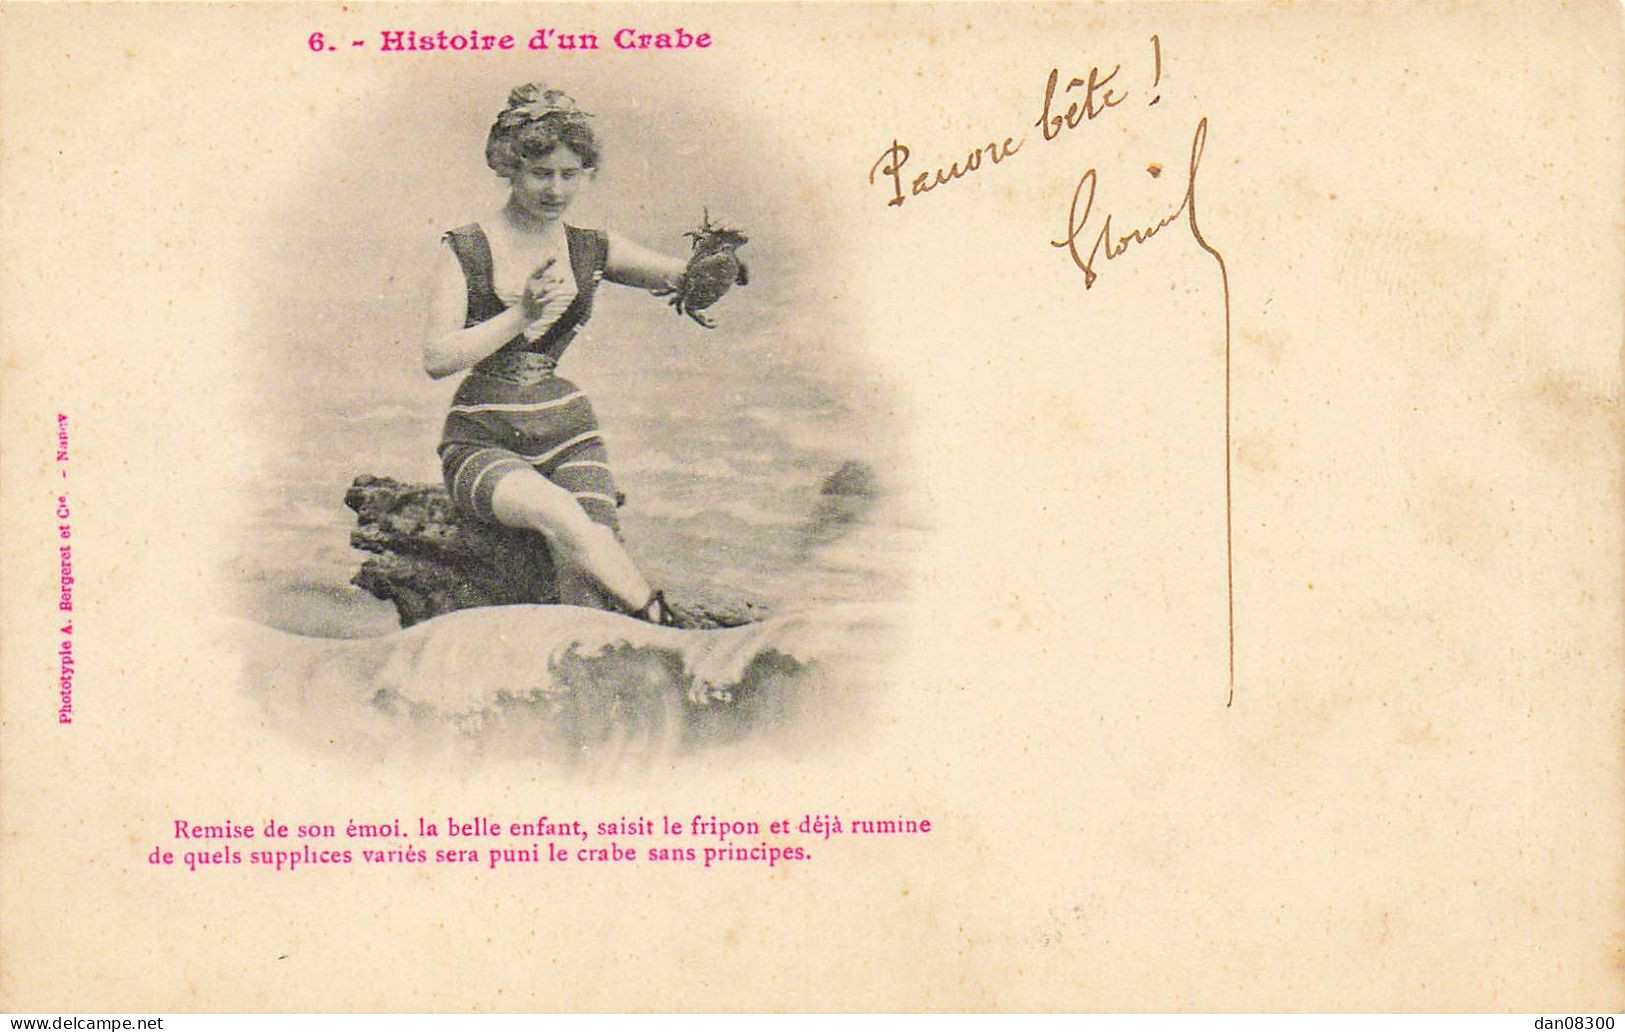 6. - Histoire d'un Crabe
Pauvre bête !
Phototypie A. Bergeret et Cie. - Nancy
Remise de son émoi. la belle enfant, saisit le fripon et déjà rumine
de quels supplices variés sera puni le crabe sans principes.
dan08300